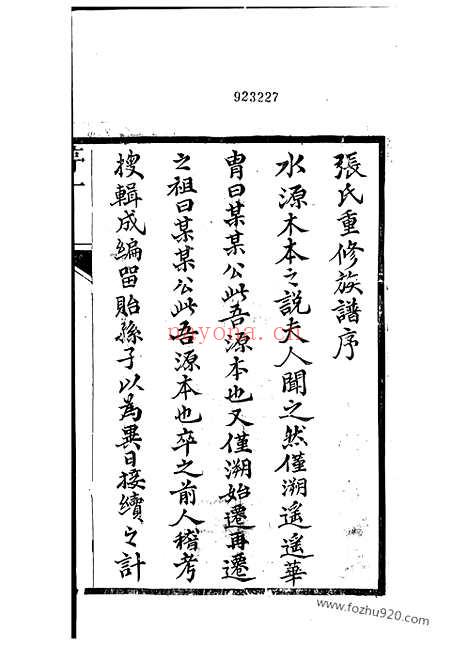 923227
張氏重修族譜序
水源木本之説夫人聞之然僅溯遥遥華
胄曰某某公此吾源本也又僅溯始遷再遷
之祖曰某某公此吾源本也卒之前人稽考
搜輯成編留貽孫子以為異日接續之計
nayona.cn
www.fozhu920.com